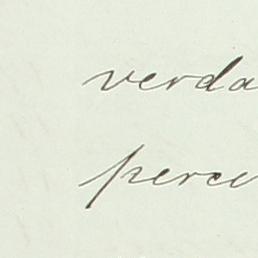 verda
perce